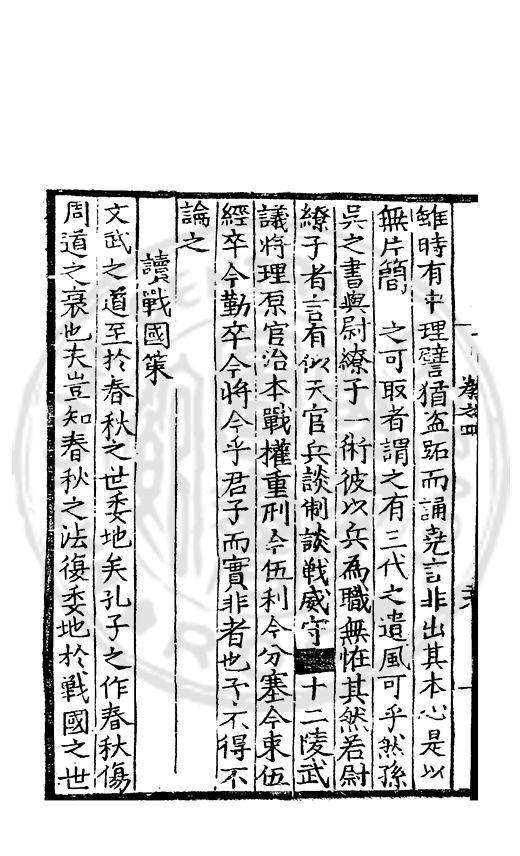 雖時有中理譬猶盜跖而誦堯言非出其本心是以
無片簡 之可取者謂之有三代之遺風可乎然孫
吳之書與尉繚子一術彼以兵為職無怪其然若尉
繚子者言有似天官兵談制談戰威守 十二陵武
議將理原官治本戰權重刑令伍利令分塞令束伍
經卒令勤卒令將令乎君子而實非者也予不得不
論之
讀戰國策
文武之道至於春秋之世委地矣孔子之作春秋傷
周道之衰也夫豈知春秋之法復委地於戰國之世
卷之四